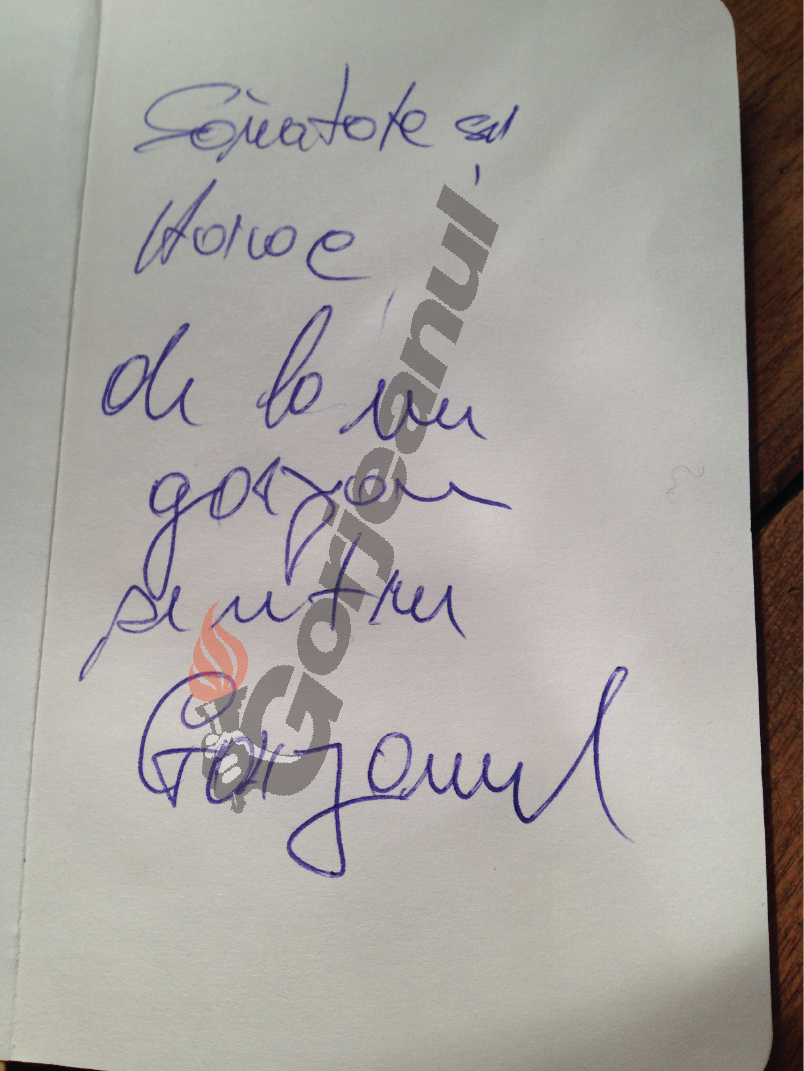 Sănatate și
Noroc,
de la un
gorjan
pentru
Gorjanul
Gorjeanul